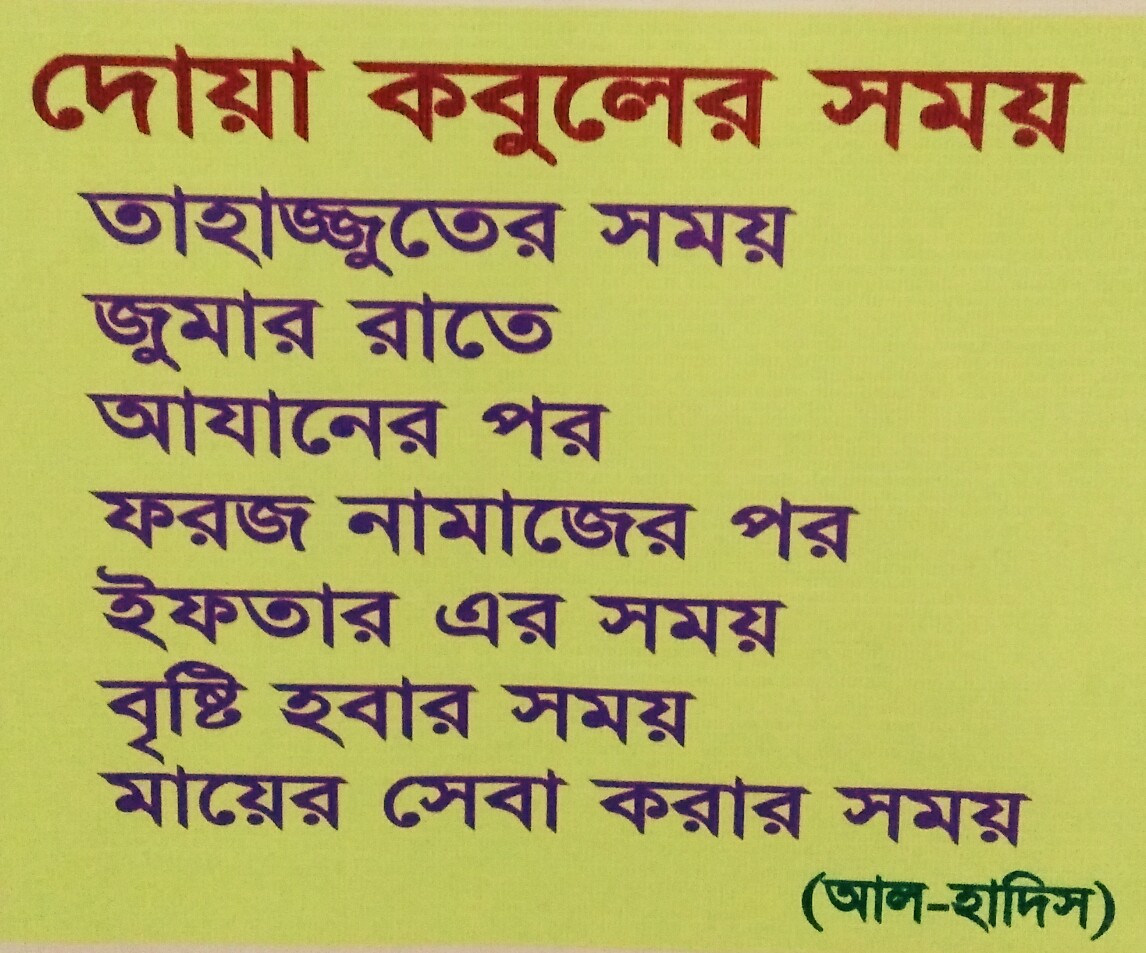 দোয়া কবুলের সময়
তাহাজ্জুতের সময়
জুমার রাতে
আযানের পর
ফরজ নামাজের পর
ইফতার এর সময়
বৃষ্টি হবার সময়
মায়ের সেবা করার সময়
(আল-হাদিস)